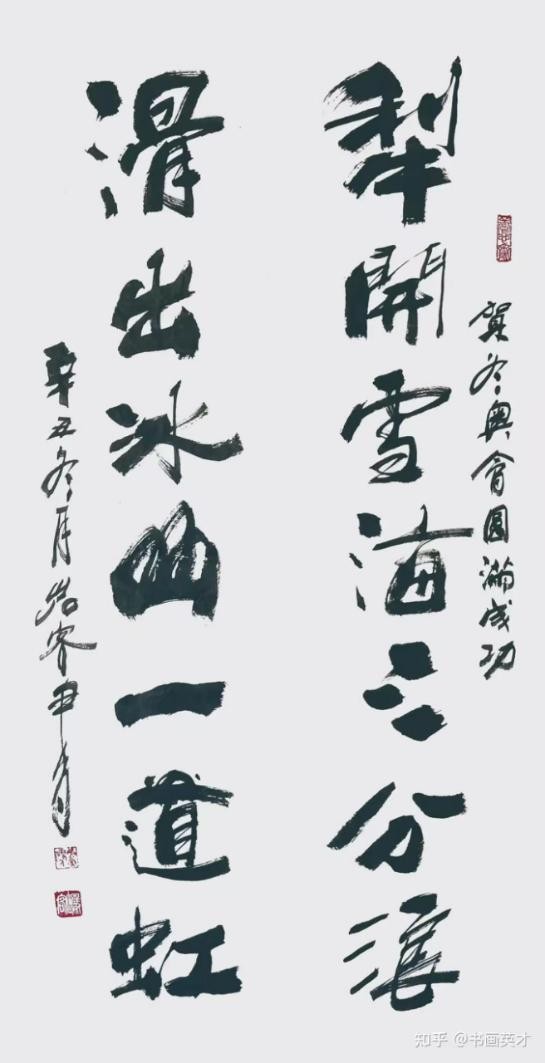 賀冬奧會圓滿成功
犁開雪海三分浪
滑出冰山一道虹
辛丑冬月岩客申
知乎 @书画英才